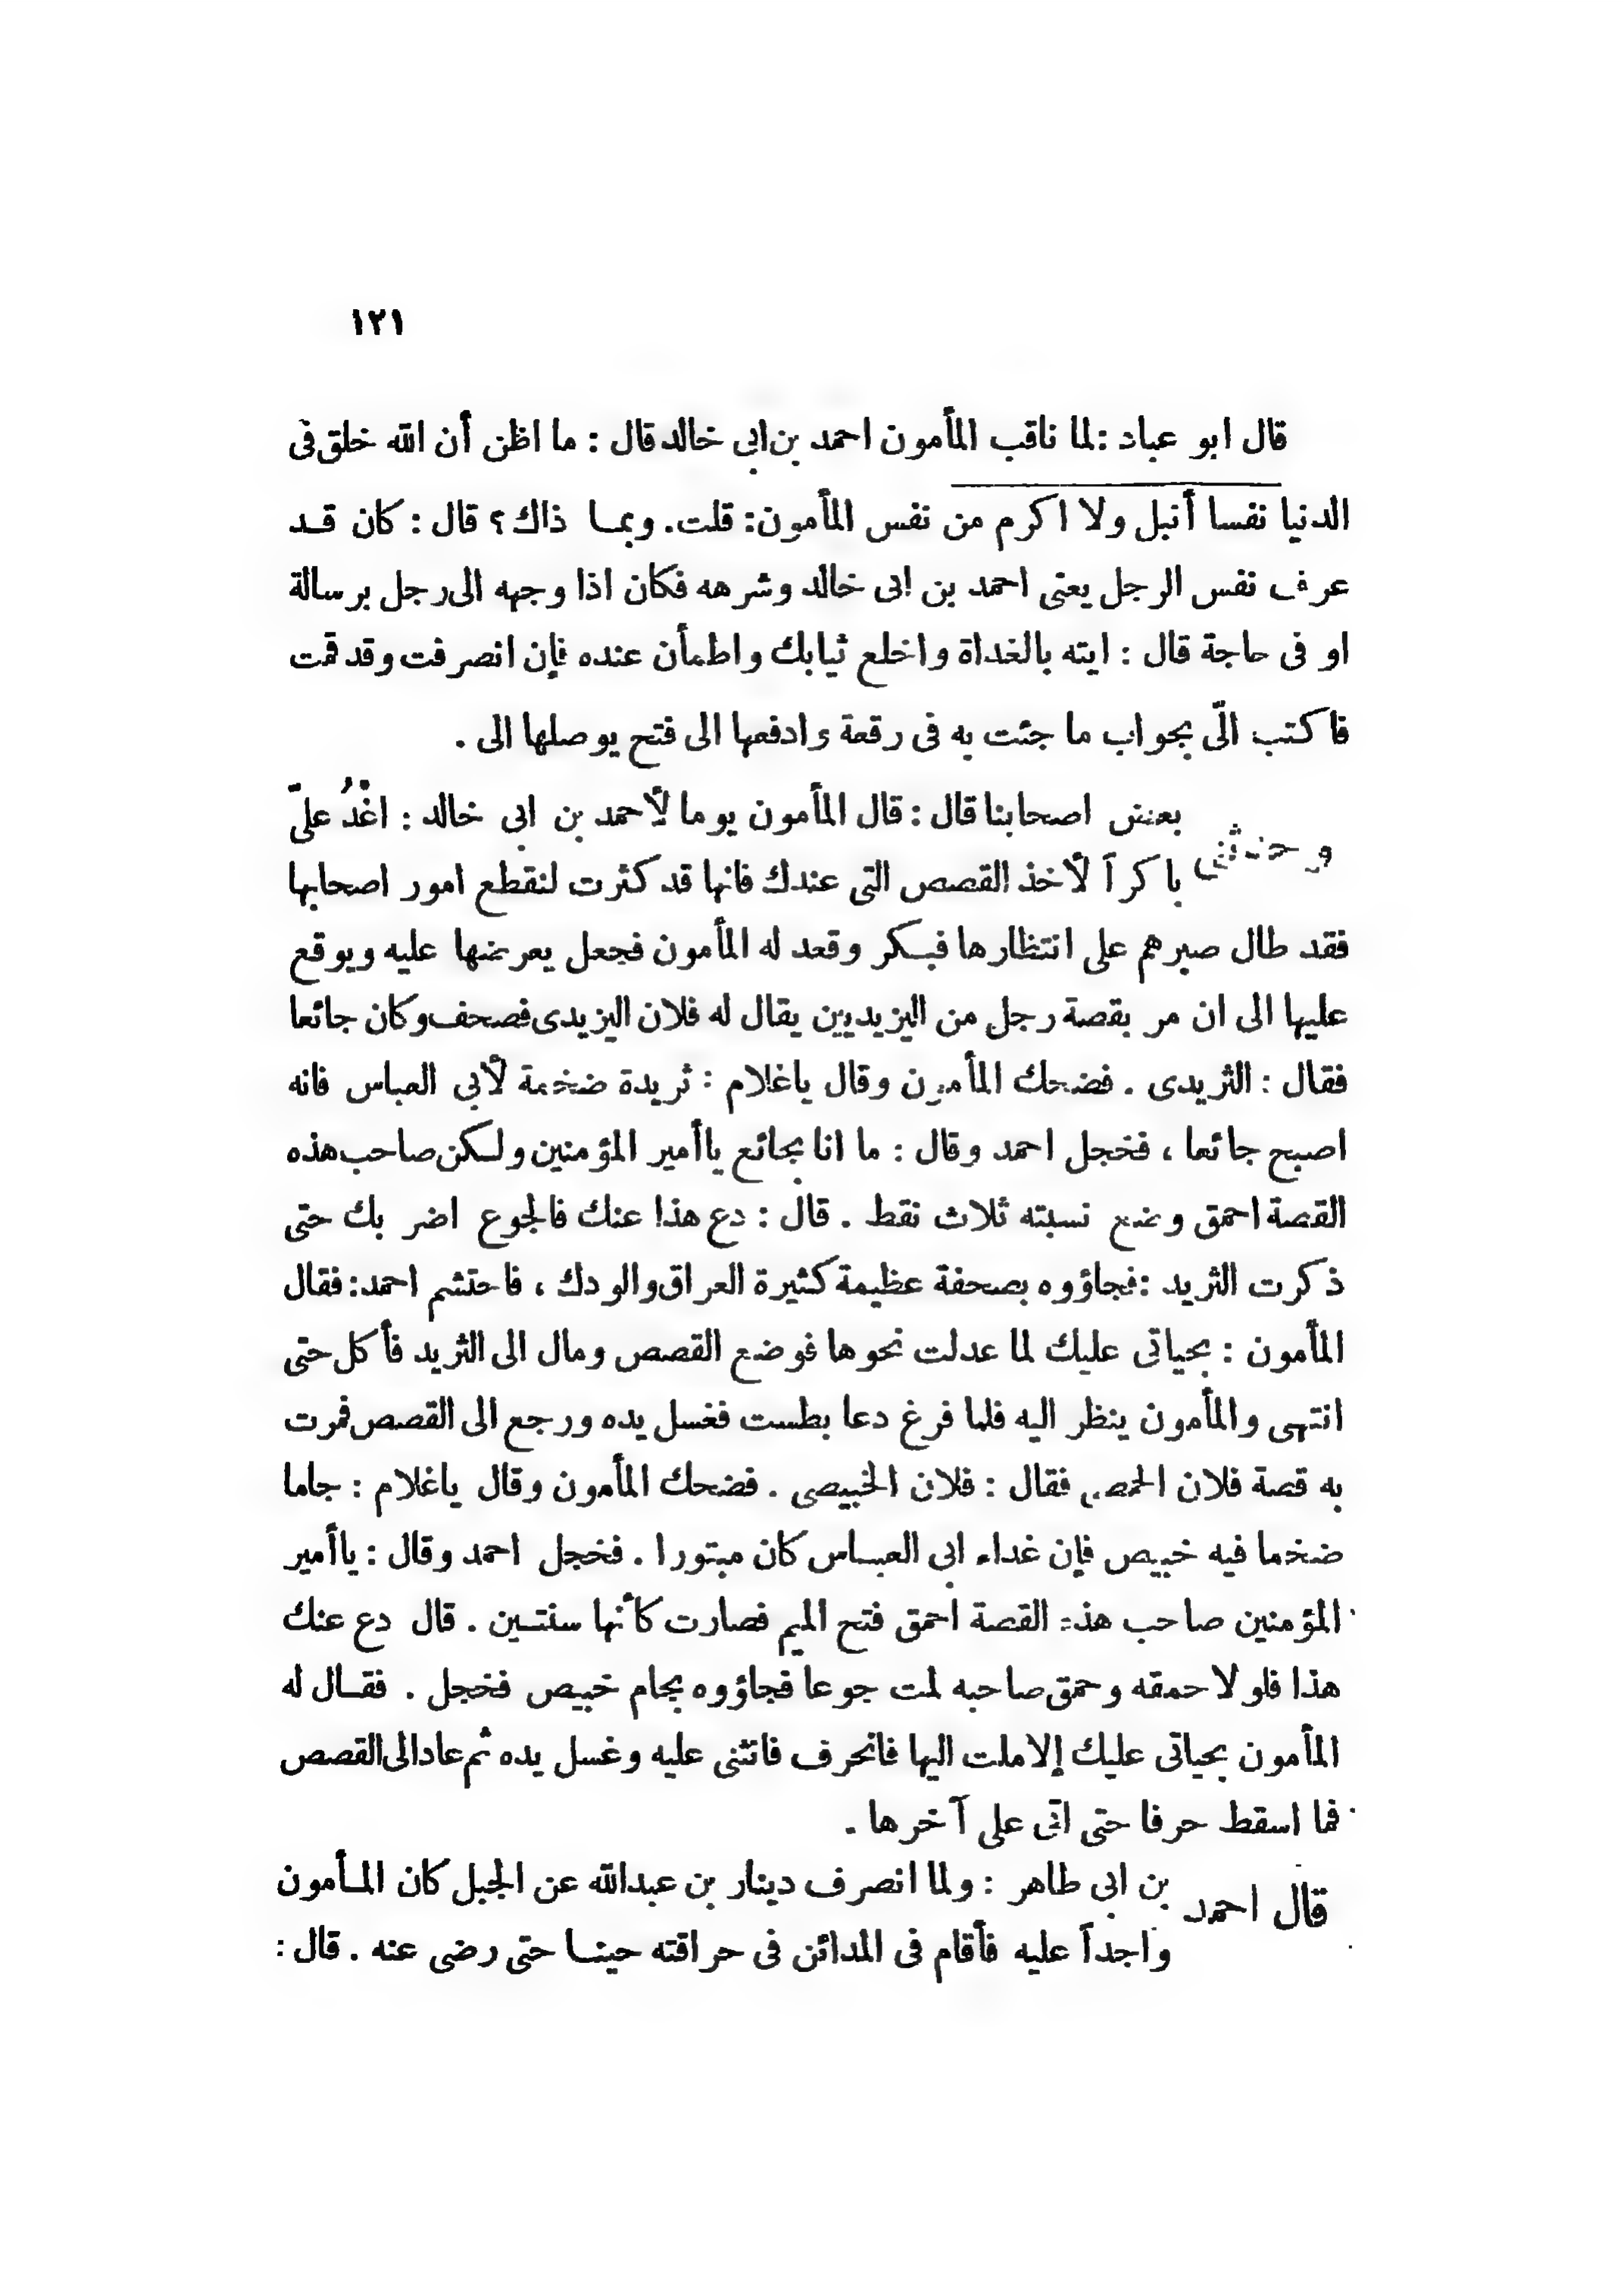 ١٢١
قال ابو عباد : لما ناقب المأمون احمد بن ابى خالد قال : ما اظن أن الله خلق فى
الدنيا نفسا أنبل ولا اكرم من نفس المأمون : قلت . وبما ذاك ؟ قال : كان قد
عرف نفس الرجل يعنى احمد بن ابى خالد وشرهه فكان اذا وجهه الى رجل برسالة
او فى حاجة قال : ايته بالغداة واخلع ثيابك واطمأن عنده فإن انصرفت وقد قمت
فاكتب الىّ بجواب ما جئت به فى رقعة وادفعها الى فتح يوصلها الى .
وحدثنى بعض اصحابنا قال : قال المأمون يوما لأحمد بن ابى خالد : اغْدُ علىّ
باكراً لأخذ القصص التى عندك فانها قد كثرت لنقطع امور اصحابها
فقد طال صبرهم على انتظارها فبكر وقعد له المأمون فجعل يعرضها عليه ويوقع
عليها الى ان مر بقصة رجل من اليزيديين يقال له فلان اليزيدى فصحف وكان جائعا
فقال : الثريدى . فضحك المأمون وقال ياغلام : ثريدة ضخمة لأبى العباس فانه
اصبح جائعا ، فخجل احمد وقال : ما انا بجائع ياأمير المؤمنين ولكن صاحب هذه
القصة احمق وضع نسبته ثلاث نقط . قال : دع هذا عنك فالجوع اضر بك حتى
ذكرت الثريد : فجاؤوه بصحفة عظيمة كثيرة العراق والودك ، فاحتشم احمد : فقال
المأمون : بحياتى عليك لما عدلت نحوها فوضع القصص ومال الى الثريد فأكل حتى
انتهى والمأمون ينظر اليه فلما فرغ دعا بطست فغسل يده ورجع الى القصص فمرت
به قصة فلان الحمصى فقال : فلان الخبيصى . فضحك المأمون وقال ياغلام : جاما
ضخما فيه خبيص فإن غداء ابى العباس كان مبتورا . فخجل احمد وقال : ياأمير
المؤمنين صاحب هذه القصة احمق فتح الميم فصارت كأنها سنتين . قال دع عنك
هذا فلولا حمقه وحمق صاحبه لمت جوعا فجاؤوه بجام خبيص فخجل . فقال له
المأمون بحياتى عليك إلاملت اليها فانحرف فانثنى عليه وغسل يده ثم عاد الى القصص
فما اسقط حرفا حتى اتى على آخرها .
قال احمد بن ابى طاهر : ولما انصرف دينار بن عبدالله عن الجبل كان المأمون
واجداً عليه فأقام فى المدائن فى حراقته حينا حتى رضى عنه . قال :